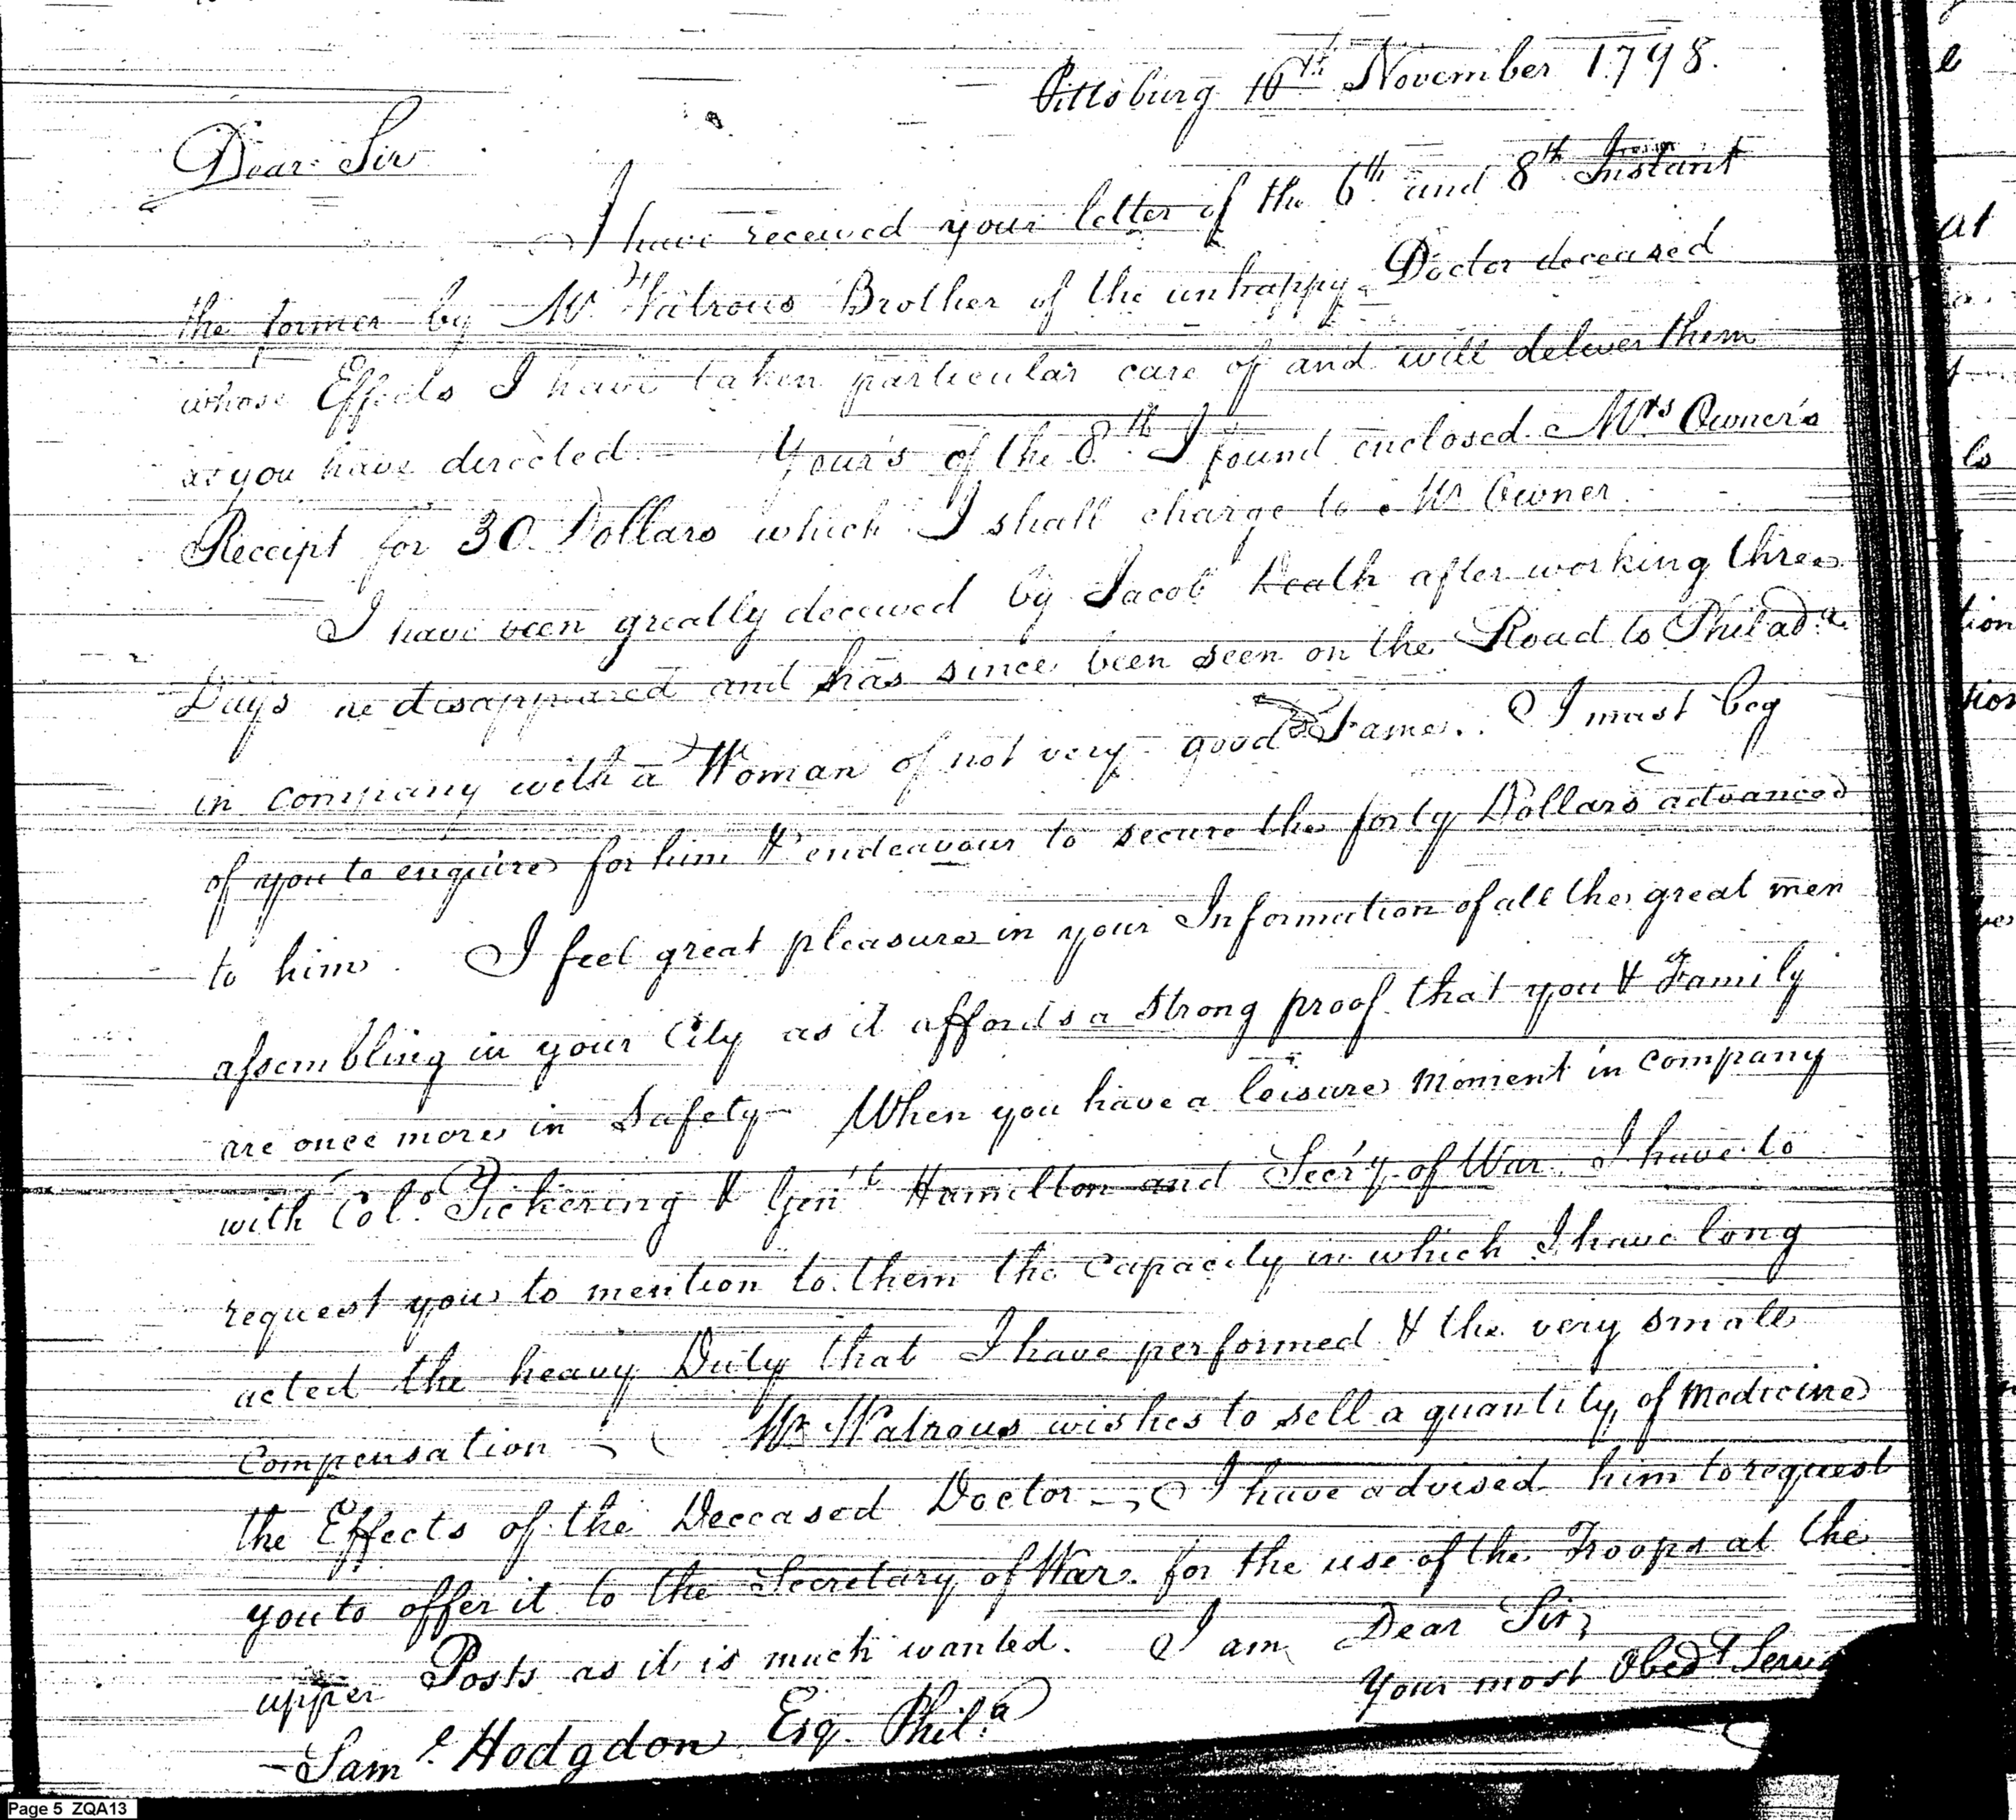 Pittsburg 16th November 1798.
Dear Sir
I have received your letter of the 6th and 8th Instant
the former by Mr Watrous Brother of the unhappy Doctor deceased
whose Effects I have taken particular care of and will deliver them
as you have directed — Your's of the 8th I found enclosed Mrs Owner's
Receipt for 30 Dollars which I shall charge to Mr Owner
I have been greatly deceived by Jacob Heath after working three
Days he disappeared and has since been seen on the Road to Philada
in company with a Woman of not very good Fame. I must beg
of you to enquire for him & endeavour to secure the forty Dollars advanced
to him. I feel great pleasure in your Information of all the great men
assembling in your City as it affords a strong proof that you & Family
are once more in Safety — When you have a leisure moment in company
with Colo Pickering & Genl Hamilton and Secr'y of War I have to
request you to mention to them the Capacity in which I have long
acted the heavy Duty that I have performed & the very small
Compensation — Mr Watrous wishes to sell a quantity of Medicine
the Effects of the Deceased Doctor — I have advised him to request
you to offer it to the Secretary of War for the use of the Troops at the
upper Posts as it is much wanted. I am Dear Sir,
Your most Obedt
Saml Hodgdon Esq. Phila
Page 5 ZQA13